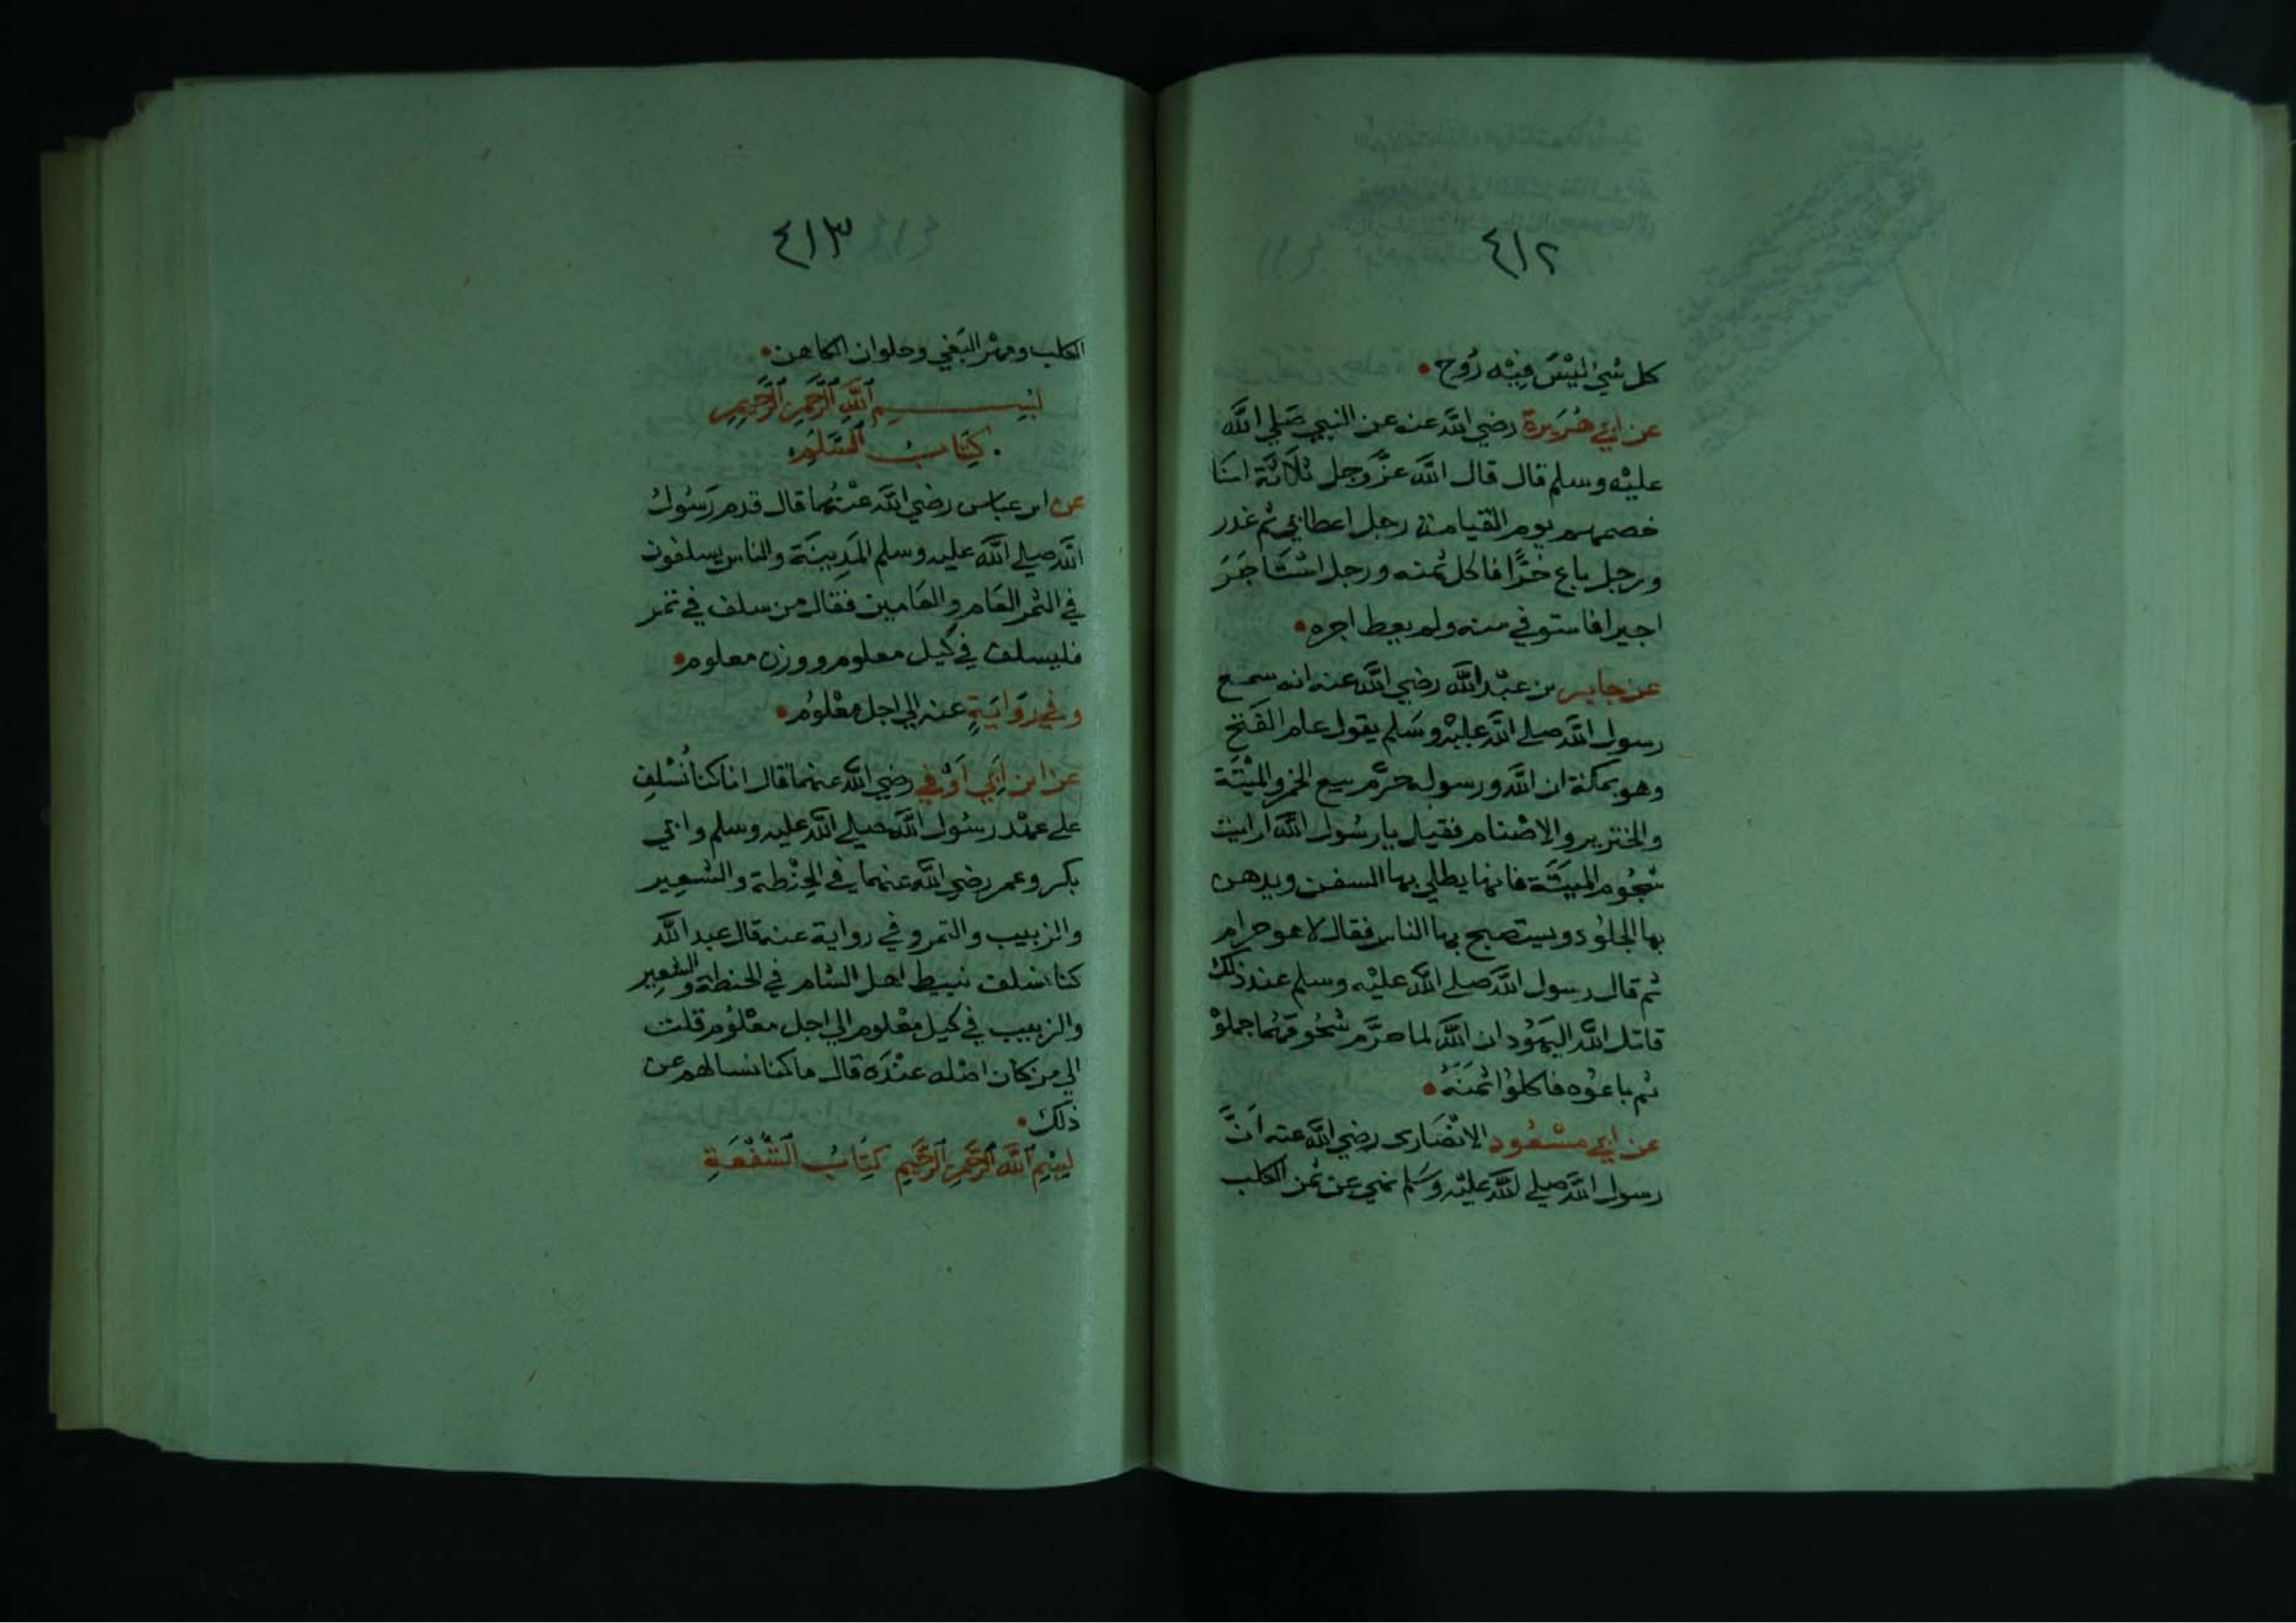 ٤١٢
كل شي ليْسَ فِيْه رُوح
عن ابي هُرَيرة رضي اللَّه عنه عن النبي صَلي اللَّه
عليْه وسلم قال قال اللَّه عزَّ وجل ثلَاثَة انَا
خصمهم يوم القيامة رجل اعطابي ثم غدر
ورجل باع حُرًّا فاكل ثمنه ورجل اسْتَاجَرَ
اجيرا فاستوفي منه ولم يعط اجره
عن جابر بن عبْد اللَّه رضي اللَّه عنه انه سمع
رسول اللَّه صلي اللَّه عليْه وسَلم يقول عام الفَتح
وهو بمكة ان اللَّه ورسوله حرَّم بيع الخمر والميْتَة
والخنزير والاصْنام فقيل يا رسُول اللَّه ارايت
شحُوم الميتَة فانها يطلي بها السفن ويدهن
بها الجلُود ويستصبح بها الناس فقال لا هو حرام
ثم قال رسول اللَّه صلي اللَّه عليْه وسلم عند ذلك
قاتل اللَّه اليهُود ان اللَّه لما حرَّم شُحُومَهُما جملوْ
ثم باعوُه فاكلوُا ثمَنَهُ
عن ابي مسْعُود الانْصَارى رضي اللَّه عنه انَّ
رسول اللَّه صلي اللَّه عليْه وسَلم نهي عن ثمن الكلب
٤١٣
الكلب ومهْر البَغي وحلوان الكاهن
بسم اللَّه الرَّحمن الرَّحِيمِ
كتَابُ السَّلَم
عن ابن عباس رضي اللَّه عنْهُما قال قدم رَسُولُ
اللَّه صلي اللَّه عليه وسلم المَدِينَة والناس يسلفون
في الثمر العَام والعَامين فقال من سلف في تمر
فليسلف في كيل معلوم ووزن معلوم
وفي رِوَايَةٍ عنه الي اجل معْلوُم
عن ابن ابَي اَوْفي رضي اللَّه عنهما قال انا كنا نُسْلِف
علي عهْد رسُول اللَّه صلي اللَّه عليه وسلم وابي
بكر وعمر رضي اللَّه عنهما في الحِنْطة والشعِير
والزبيب والتمر وفي رواية عنه قال عبد اللَّه
كنا نسلف نبيط اهل الشام في الحنطة والشعِير
والزبيب في كيل معْلوم الي اجل معْلوُم قلت
الي من كان اصْله عنْدَه قال ما كنا نسالهم عن
ذلك
بسْمِ اللَّه الرَّحمن الرَّحيم كتَابُ الشُّفْعَةِ